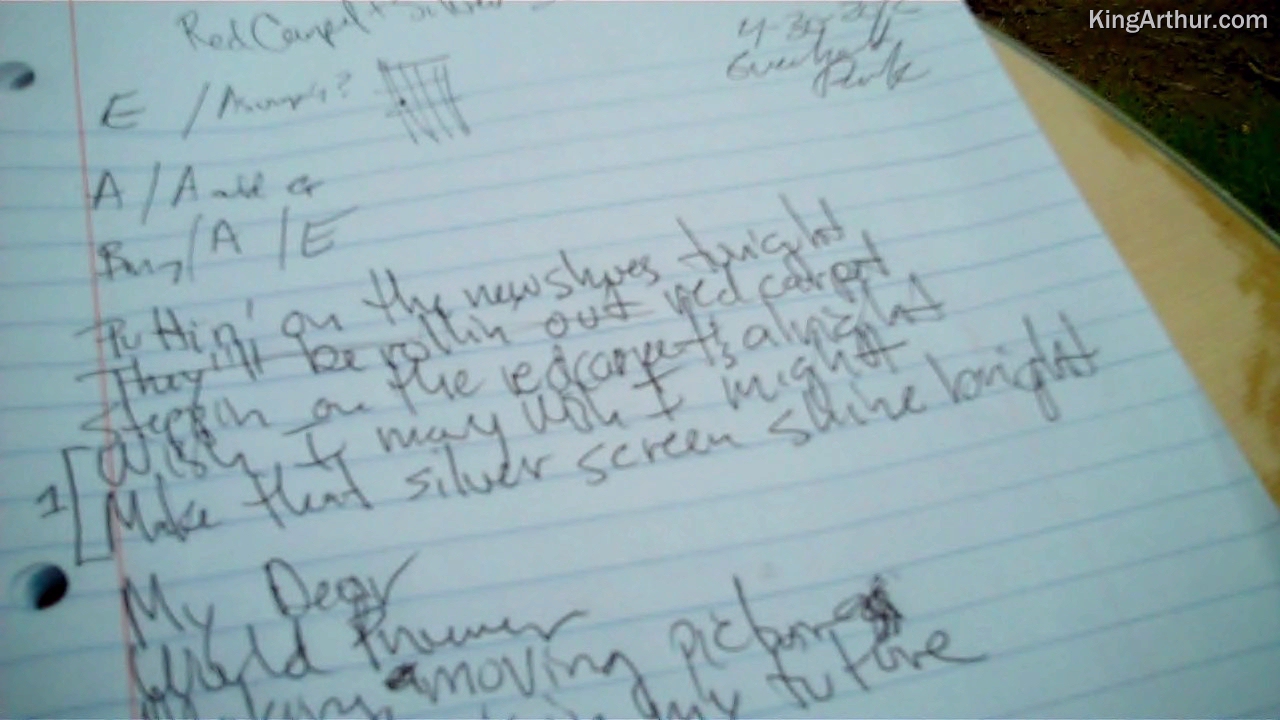 KingArthur.com
Red Carpet + Silver
4-30
Park
E /
A / A
/ A / E
Puttin' on the new shoes tnight
They'll be rollin out red carpet
Steppin on the red carpet's alright
Wish I may wish I might
1 [Make that silver screen shine bright
My Dear
World Premier
moving picture
my future